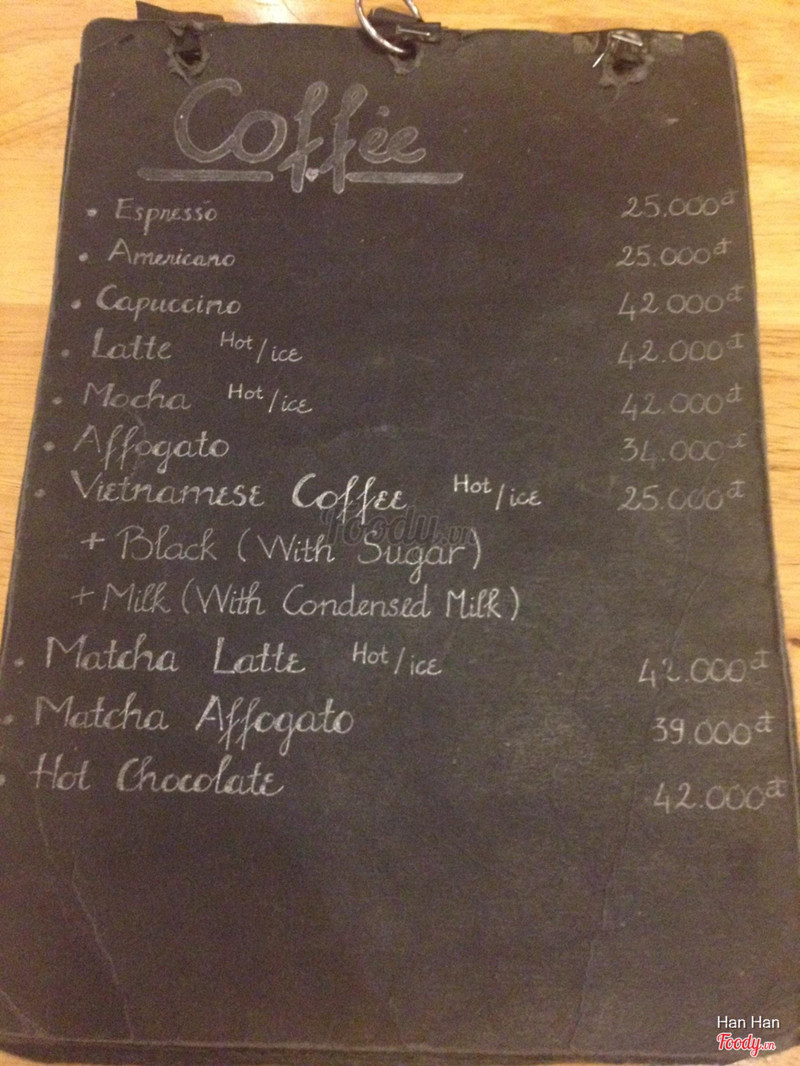 Coffee
• Espresso 25.000đ
• Americano 25.000đ
• Capuccino 42.000đ
• Latte Hot/ice 42.000đ
• Mocha Hot/ice 42.000đ
• Affogato 34.000đ
• Vietnamese Coffee Hot/ice 25.000đ
+ Black (With Sugar)
+ Milk (With Condensed Milk)
• Matcha Latte Hot/ice 42.000đ
• Matcha Affogato 39.000đ
• Hot Chocolate 42.000đ
Foody.vn
Han Han
Foody.vn